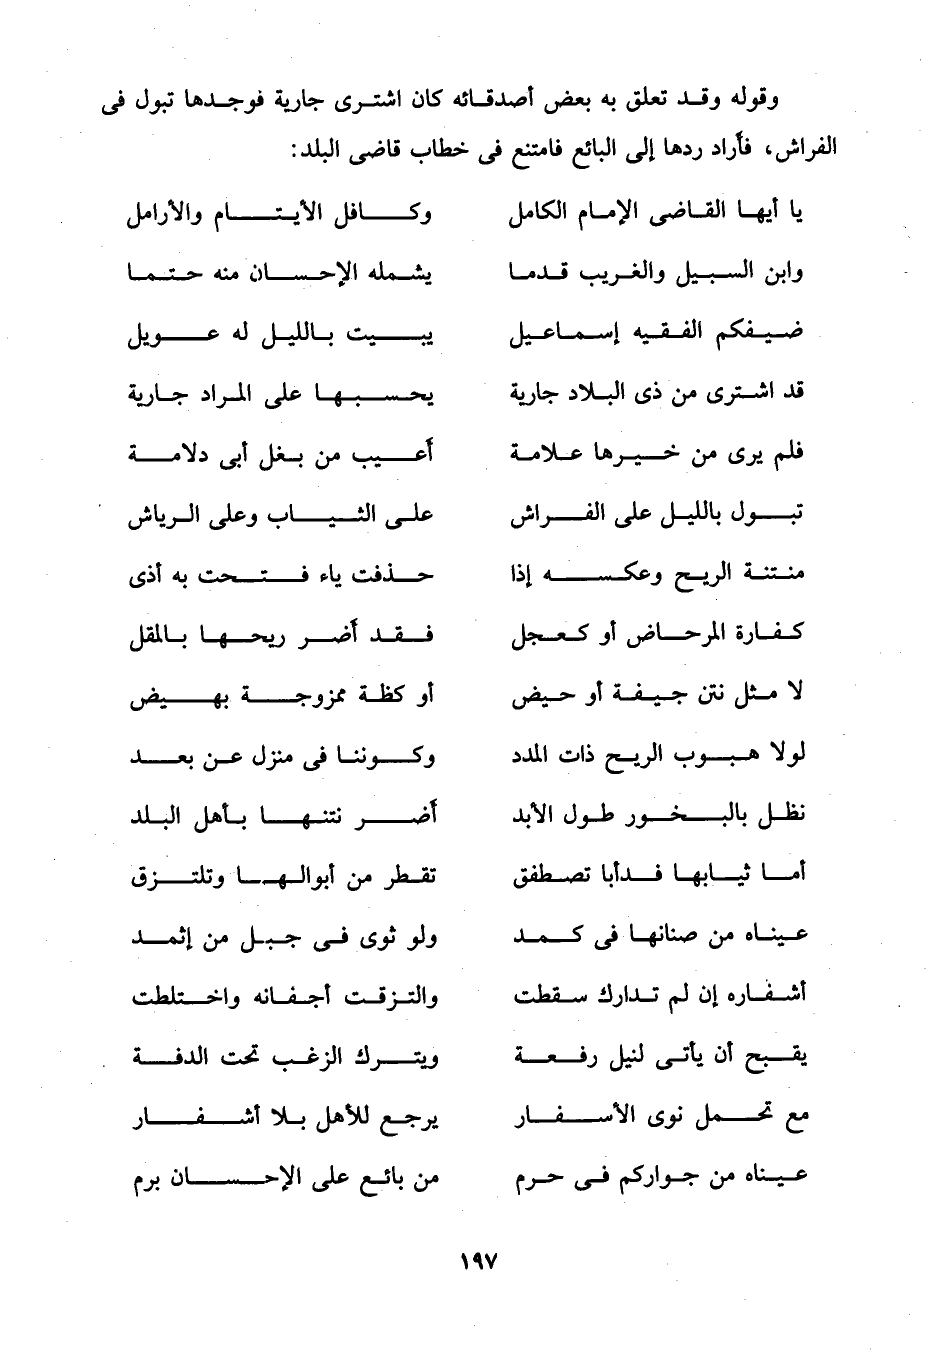 وقوله وقد تعلق به بعض أصدقائه كان اشترى جارية فوجدها تبول فى
الفراش، فأراد ردها إلى البائع فامتنع فى خطاب قاضى البلد:
يا أيها القاضى الإمام الكامل وكافل الأيتام والأرامل
وابن السبيل والغريب قدما يشمله الإحسان منه حتما
ضيفكم الفقيه إسماعيل يبيت بالليل له عويل
قد اشترى من ذى البلاد جارية يحسبها على المراد جارية
فلم يرى من خيرها علامة أعيب من بغل أبى دلامة
تبول بالليل على الفراش على الثياب وعلى الرياش
منتنة الريح وعكسه إذا حذفت ياء فتحت به أذى
كفارة المرحاض أو كعجل فقد أضر ريحها بالمقل
لا مثل نتن جيفة أو حيض أو كظة ممزوجة بهيض
لولا هبوب الريح ذات المدد وكوننا فى منزل عن بعد
نظل بالبخور طول الأبد أضر نتنها بأهل البلد
أما ثيابها فدأبا تصطفق تقطر من أبوالها وتلتزق
عيناه من صنانها فى كمد ولو ثوى فى جبل من إثمد
أشفاره إن لم تدارك سقطت والتزقت أجفانه واختلطت
يقبح أن يأتى لنيل رفعة ويترك الزغب تحت الدفة
مع تحمل نوى الأسفار يرجع للأهل بلا أشفار
عيناه من جواركم فى حرم من بائع على الإحسان برم
١٩٧